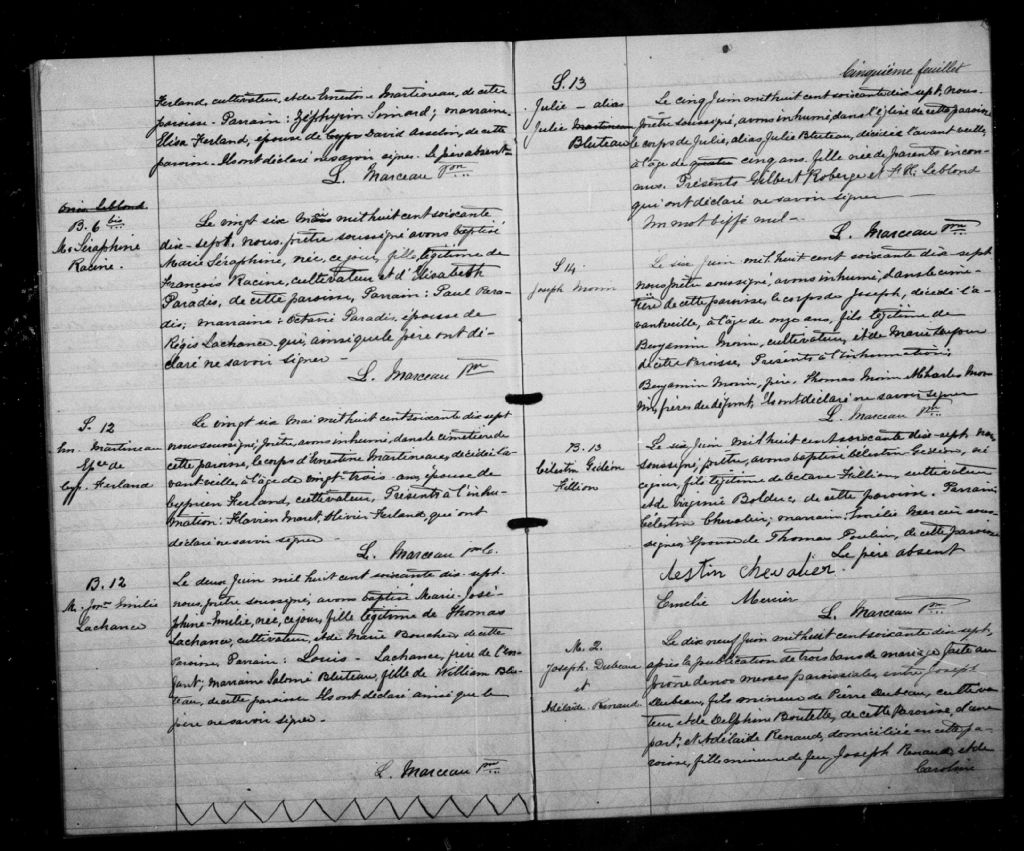 Ferland, cultivateur, et de Ernestine Martineau, de cette
paroisse. Parrain: Zéphyrin Simard; marraine
Elisa Ferland, épouse de David Asselin, de cette
paroisse. Ils ont déclaré ne savoir signer. Le père absent
L. Marceau Ptre
B. 6 bis
M. Séraphine
Racine.
Le vingt six mai mil huit cent soixante
dix-sept, nous, prêtre soussigné avons baptisé
Marie Séraphine, née, ce jour, fille légitime de
François Racine, cultivateur et d'Elisabeth
Paradis, de cette paroisse, Parrain: Paul Para-
dis; marraine: Octavie Paradis, épouse de
Régis Lachance qui, ainsi que le père ont dé-
claré ne savoir signer -
L. Marceau Ptre
S. 12
Ern. Martineau
Epse de
Cyp. Ferland
Le vingt six mai mil huit cent soixante dix sept
nous soussigné, prêtre, avons inhumé, dans le cimetière de
cette paroisse, le corps d'Ernestine Martineau, décédée l'a-
vant veille, à l'âge de vingt-trois ans, épouse de
Cyprien Ferland, cultivateur, Présents à l'inhu-
mation: Flavien Moret, Olivier Ferland, qui ont
déclaré ne savoir signer -
L. Marceau
B. 12
M. Jos. Emilie
Lachance
Le deux Juin mil huit cent soixante dix-sept
nous, prêtre soussigné, avons baptisé Marie-José-
phine-Emilie, née, ce jour, fille légitime de Thomas
Lachance, cultivateur, et de Marie Boucher, de cette
Paroisse, Parrain: Louis - Lachance, frère de l'en-
fant; marraine Salomé Bluteau, fille de William Blu-
teau, de cette paroisse. Ils ont déclaré ainsi que le
père ne savoir signer -
L. Marceau Ptre
Cinquième feuillet
S. 13
Julie - alias
Julie Martineau
Bluteau
Le cinq Juin mil huit cent soixante dix sept, nous
prêtre soussigné, avons inhumé, dans l'église de cette paroisse
le corps de Julie, alias Julie Bluteau, décédée l'avant veille,
à l'âge de quatre cinq ans, fille née de parents incon-
nus. Présents Gilbert Roberge et F. X. Leblond
qui ont déclaré ne savoir signer
Un mot biffé nul -
L. Marceau Ptre
S 14.
Joseph Morin
Le six Juin mil huit cent soixante dix-sept
nous prêtre soussigné, avons inhumé, dans le cime-
tière de cette paroisse, le corps de Joseph, décédé l'a-
vant veille, à l'âge de onze ans, fils légitime de
Benjamin Morin, cultivateur, et de Marie Dufour
de cette Paroisse, Présents à l'inhumation;
Benjamin Morin, père, Thomas Morin et Charles Mo-
rin, frères du défunt, Ils ont déclaré ne savoir signer
L. Marceau Ptre
B. 13
Célestin Gédéon
Fillion
Le six Juin mil huit cent soixante dix-sept nous
soussigné, prêtre, avons baptisé Célestin Gédéon, né
ce jour, fils légitime de Octave Fillion, cultivateur
et de Virginie Bolduc, de cette paroisse. Parrain
Célestin Chevalier; marraine Emélie Mercier sous-
signés Epouse de Thomas Poulin, de cette paroisse
Le père absent
Célestin Chevalier.
Emélie Mercier
L. Marceau Ptre
M. 2.
Joseph Dubeau
et
Adélaïde Renaud
Le dix neuf Juin mil huit cent soixante dix sept,
après la publication de trois bans de mariage faite au
prône de nos messes paroissiales, entre Joseph
Dubeau, fils mineur de Pierre Dubeau, cultiva-
teur et de Delphine Boutette, de cette Paroisse, d'une
part; et Adélaïde Renaud, domiciliée en cette pa-
roisse, fille mineure de feu Joseph Renaud et de
Caroline